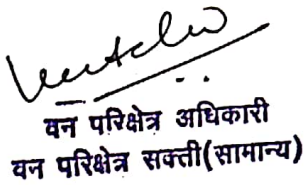 वन परिक्षेत्र अधिकारी
वन परिक्षेत्र सक्ती(सामान्य)